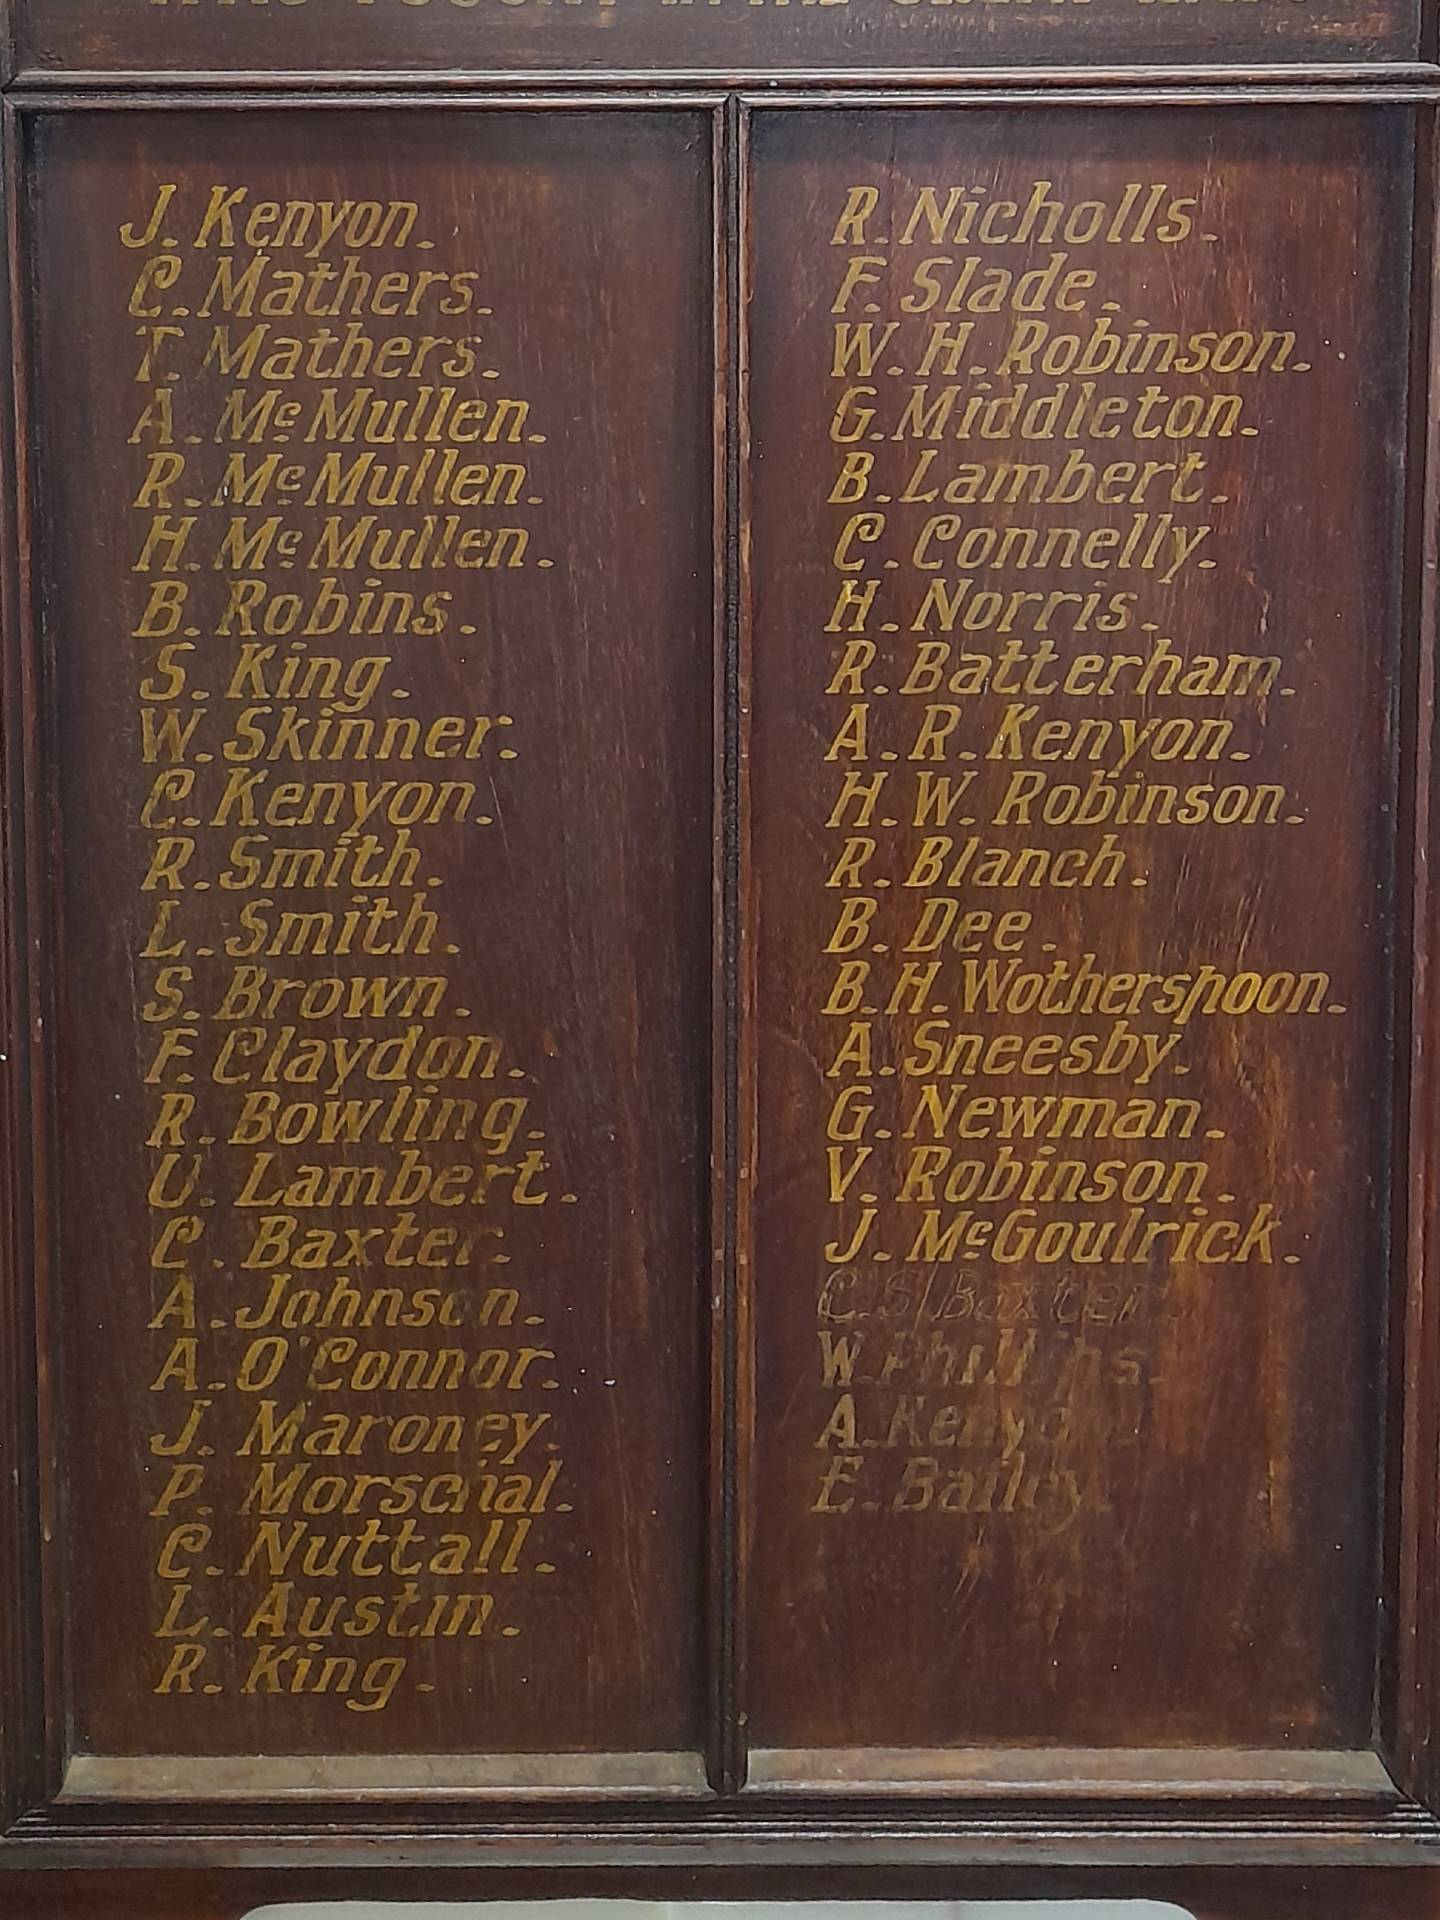 J. Kenyon.
C. Mathers.
T. Mathers.
A. McMullen.
R. McMullen.
H. McMullen.
B. Robins.
S. King.
W. Skinner.
C. Kenyon.
R. Smith.
L. Smith.
S. Brown.
F. Claydon.
R. Bowling.
U. Lambert.
C. Baxter.
A. Johnson.
A. O'Connor.
J. Maroney.
P. Morschal.
C. Nuttall.
L. Austin.
R. King.
R. Nicholls.
F. Slade.
W. H. Robinson.
G. Middleton.
B. Lambert.
C. Connelly.
H. Norris.
R. Batterham.
A. R. Kenyon.
H. W. Robinson.
R. Blanch.
B. Dee.
B. H. Wotherspoon.
A. Sneesby.
G. Newman.
V. Robinson.
J. McGoulrick.
C. S. Baxter.
W. Phillips.
A. Kenyon
E. Bailey.